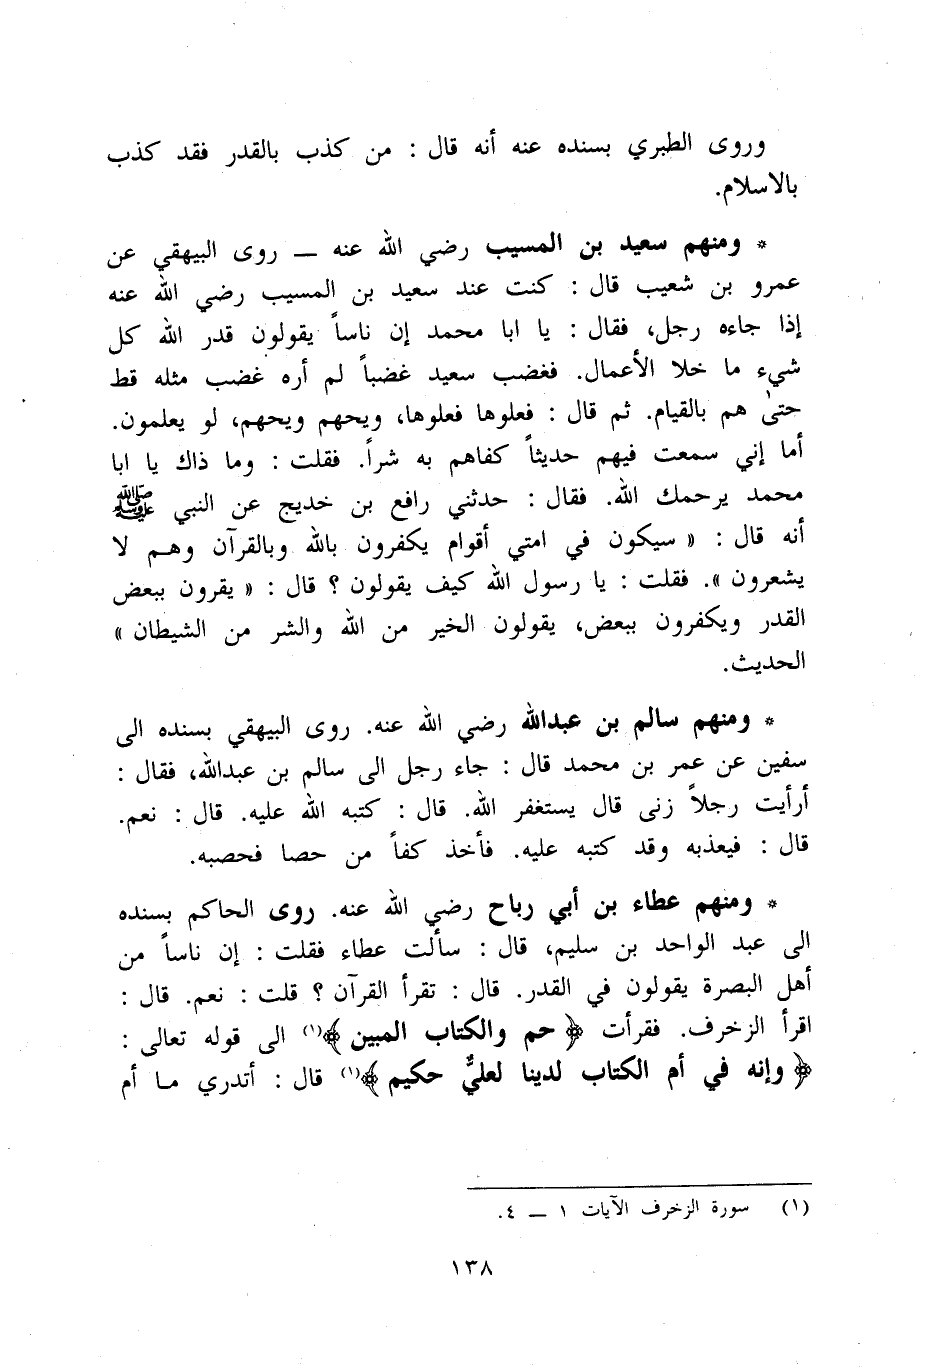 وروى الطبري بسنده عنه أنه قال : من كذب بالقدر فقد كذب
بالاسلام.
* ومنهم سعيد بن المسيب رضي الله عنه ــ روى البيهقي عن
عمرو بن شعيب قال : كنت عند سعيد بن المسيب رضي الله عنه
إذا جاءه رجل، فقال : يا ابا محمد إن ناساً يقولون قدر الله كل
شيء ما خلا الأعمال. فغضب سعيد غضباً لم أره غضب مثله قط
حتىٰ هم بالقيام. ثم قال : فعلوها فعلوها، ويحهم ويحهم، لو يعلمون.
أما إني سمعت فيهم حديثاً كفاهم به شراً. فقلت : وما ذاك يا ابا
محمد يرحمك الله. فقال : حدثني رافع بن خديج عن النبي ﷺ
أنه قال : « سيكون في امتي أقوام يكفرون بالله وبالقرآن وهـم لا
يشعرون ». فقلت : يا رسول الله كيف يقولون ؟ قال : « يقرون ببعض
القدر ويكفرون ببعض، يقولون الخير من الله والشر من الشيطان »
الحديث.
* ومنهم سالم بن عبدالله رضي الله عنه. روى البيهقي بسنده الى
سفين عن عمر بن محمد قال : جاء رجل الى سالم بن عبدالله، فقال :
أرأيت رجلاً زنى قال يستغفر الله. قال : كتبه الله عليه. قال : نعم.
قال : فيعذبه وقد كتبه عليه. فأخذ كفاً من حصا فحصبه.
* ومنهم عطاء بن أبي رباح رضي الله عنه. روى الحاكم بسنده
الى عبد الواحد بن سليم، قال : سألت عطاء فقلت : إن ناساً من
أهل البصرة يقولون في القدر. قال : تقرأ القرآن ؟ قلت : نعم. قال :
اقرأ الزخرف. فقرأت ﴿ حم والكتاب المبين ﴾(١) الى قوله تعالى :
﴿ وإنه في أم الكتاب لدينا لعليٌّ حكيم ﴾(١) قال : أتدري مـا أم
(١) سورة الزخرف الآيات ١ ــ ٤.
١٣٨